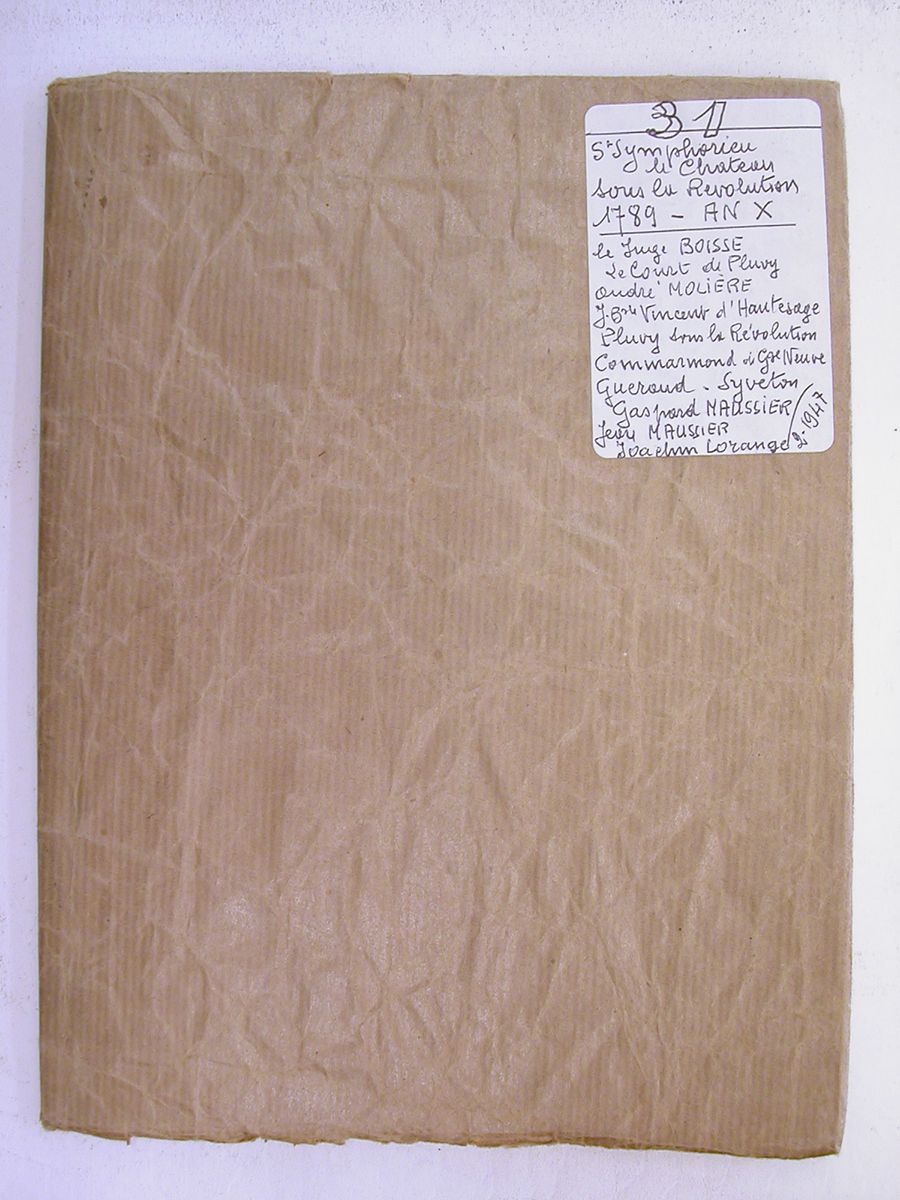 31
St Symphorien
le Chateau
sous la Revolution
1789 - AN X
le Juge BOISSE
Le Court de Pluvy
André MOLIÈRE
J. Bte Vincent d'Hautesage
Pluvy sous la Révolution
Commarmond de Gde Neuve
Gueraud - Syveton
Gaspard MAUSSIER
Jean MAUSSIER
Joachim Lorange
1947